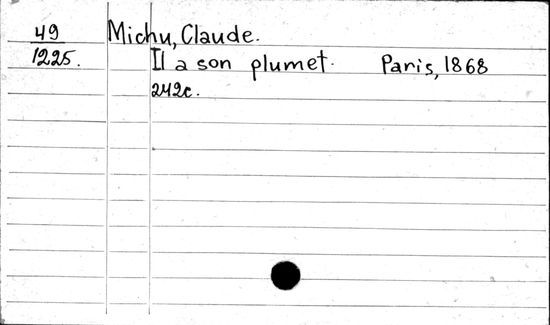 49 Michu, Claude.
1225. Il a son plumet. Paris, 1868
242c.